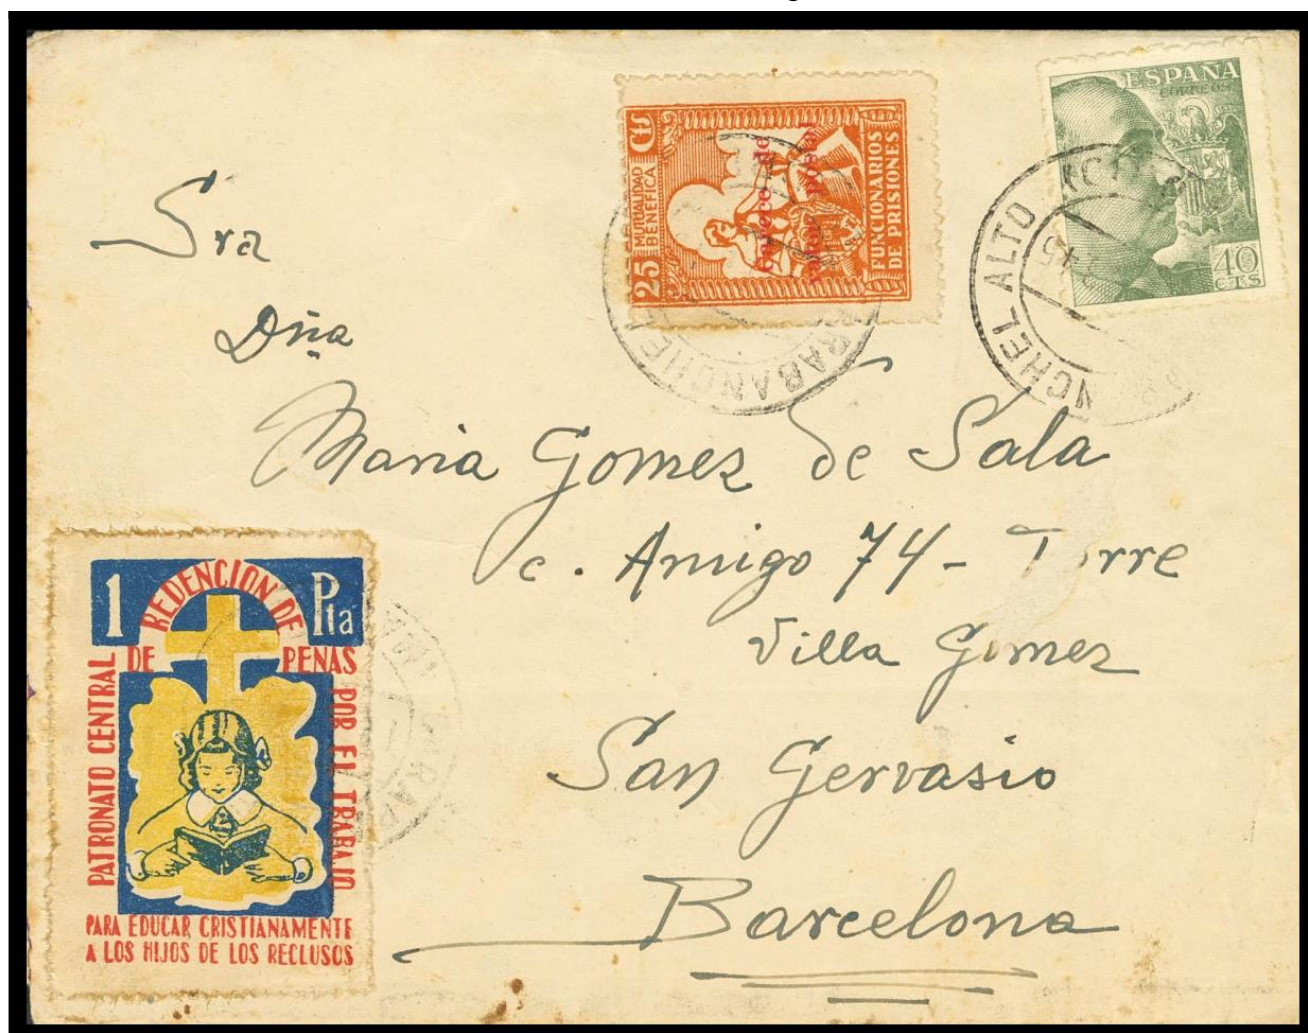 ESPAÑA
CORREOS
40
CTS
25 MUTUALIDAD BENEFICA Cts
FUNCIONARIOS
DE PRISIONES
CHEL ALTO
45
RABANCHEL
Sra
Dña
Maria Gomez de Sala
c. Amigo 74 - Torre
Villa Gomez
San Gervasio
Barcelona
1 Pta
REDENCION DE
DE PENAS
PATRONATO CENTRAL
POR EL TRABAJO
PARA EDUCAR CRISTIANAMENTE
A LOS HIJOS DE LOS RECLUSOS